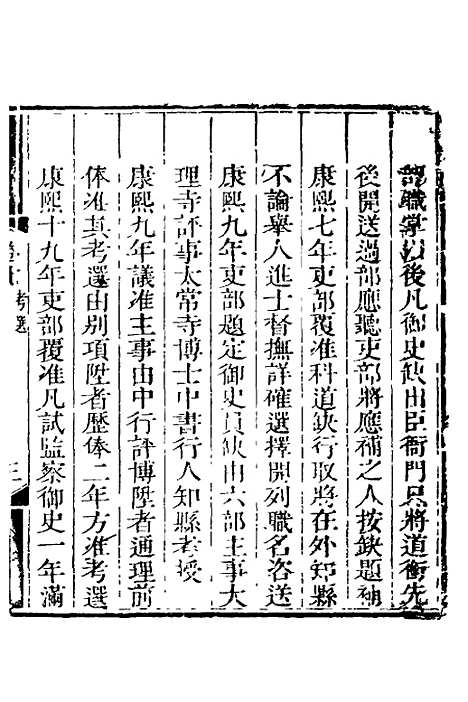 部職掌以後凡御史缺由臣衙門只將道銜先
後開送過部應聽吏部將應補之人按缺題補
康熙七年吏部覆准科道缺行取將在外知縣
不論舉人進士督撫詳確選擇開列職名咨送
康熙九年吏部題定御史員缺由六部主事大
理寺評事太常寺博士中書行人知縣考授
康熙九年議准主事由中行評博陞者通理前
俸准其考選由别項陞者歷俸二年方准考選
康熙十九年吏部覆准凡試監察御史一年滿
考選
三